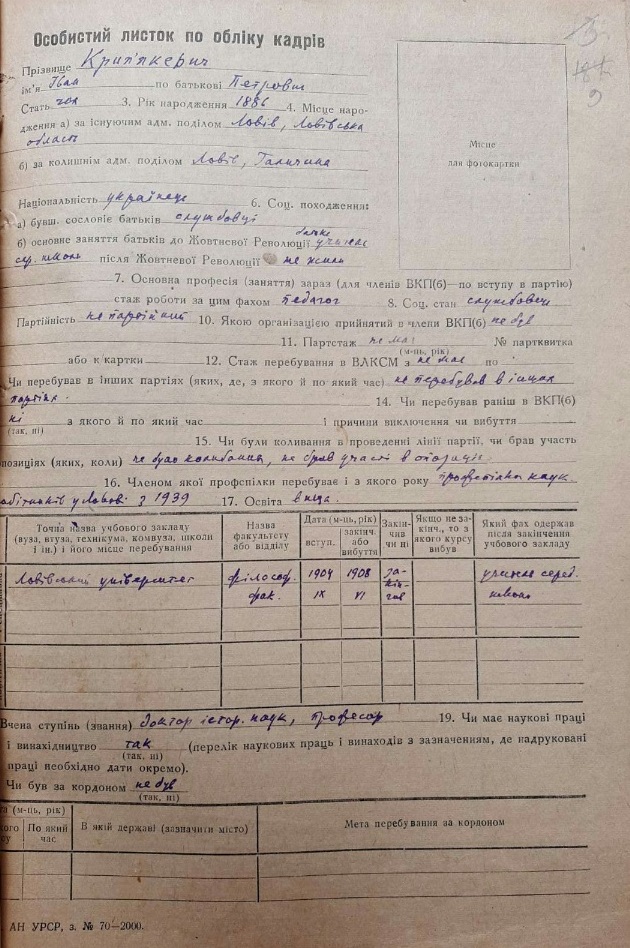 Особистий листок по обліку кадрів
Прізвище Крип'якевич
ім'я Іван по батькові Петрович
Стать чол 3. Рік народження 1886 4. Місце наро-
дження а) за існуючим адм. поділом Львів, Львівська
область
б) за колишнім адм. поділом Львів, Галичина
Місце
для фотокартки
Національність українець 6. Соц. походження:
а) бувш. сословіє батьків службовці
батько
б) основне заняття батьків до Жовтневої Революції учитель
сер. школи після Жовтневої Революції не жили
7. Основна професія (заняття) зараз (для членів ВКП(б)—по вступу в партію)
стаж роботи за цим фахом педагог 8. Соц. стан службовець
Партійність не партійний 10. Якою організацією прийнятий в члени ВКП(б) не був
11. Партстаж не має № партквитка
(м-ць, рік)
або к картки 12. Стаж перебування в ВЛКСМ з не має по
Чи перебував в інших партіях (яких, де, з якого й по який час) не перебував в інших
партіях. 14. Чи перебував раніш в ВКП(б)
ні з якого й по який час і причини виключення чи вибуття
(так, ні)
15. Чи були коливання в проведенні лінії партії, чи брав участь
опозиціях (яких, коли) не було коливання, не брав участі в опозиції
16. Членом якої профспілки перебуває і з якого року професпілки наук.
робітників у Львові з 1939 17. Освіта вища.
Точна назва учбового закладу (вуза, втуза, технікума, комвуза, школи і ін.) і його місце перебування Назва факультету або відділу Дата (м-ць, рік) вступ. закінч. або вибуття Закін- чив чи ні Якщо не за- кінч., то з якого курсу вибув Який фах одержав після закінчення учбового закладу
Львівський університет філософ. 1904 1908 за- учитель серед.
фак. IX VI кін- школи
чив
Вчена ступінь (звання) доктор істор. наук, професор 19. Чи має наукові праці
і винахідництво так (перелік наукових праць і винаходів з зазначенням, де надруковані
(так, ні)
праці необхідно дати окремо).
Чи був за кордоном не був
(так, ні)
(м-ць, рік) По який час В якій державі (зазначити місто) Мета перебування за кордоном
АН УРСР, з. № 70—2000.